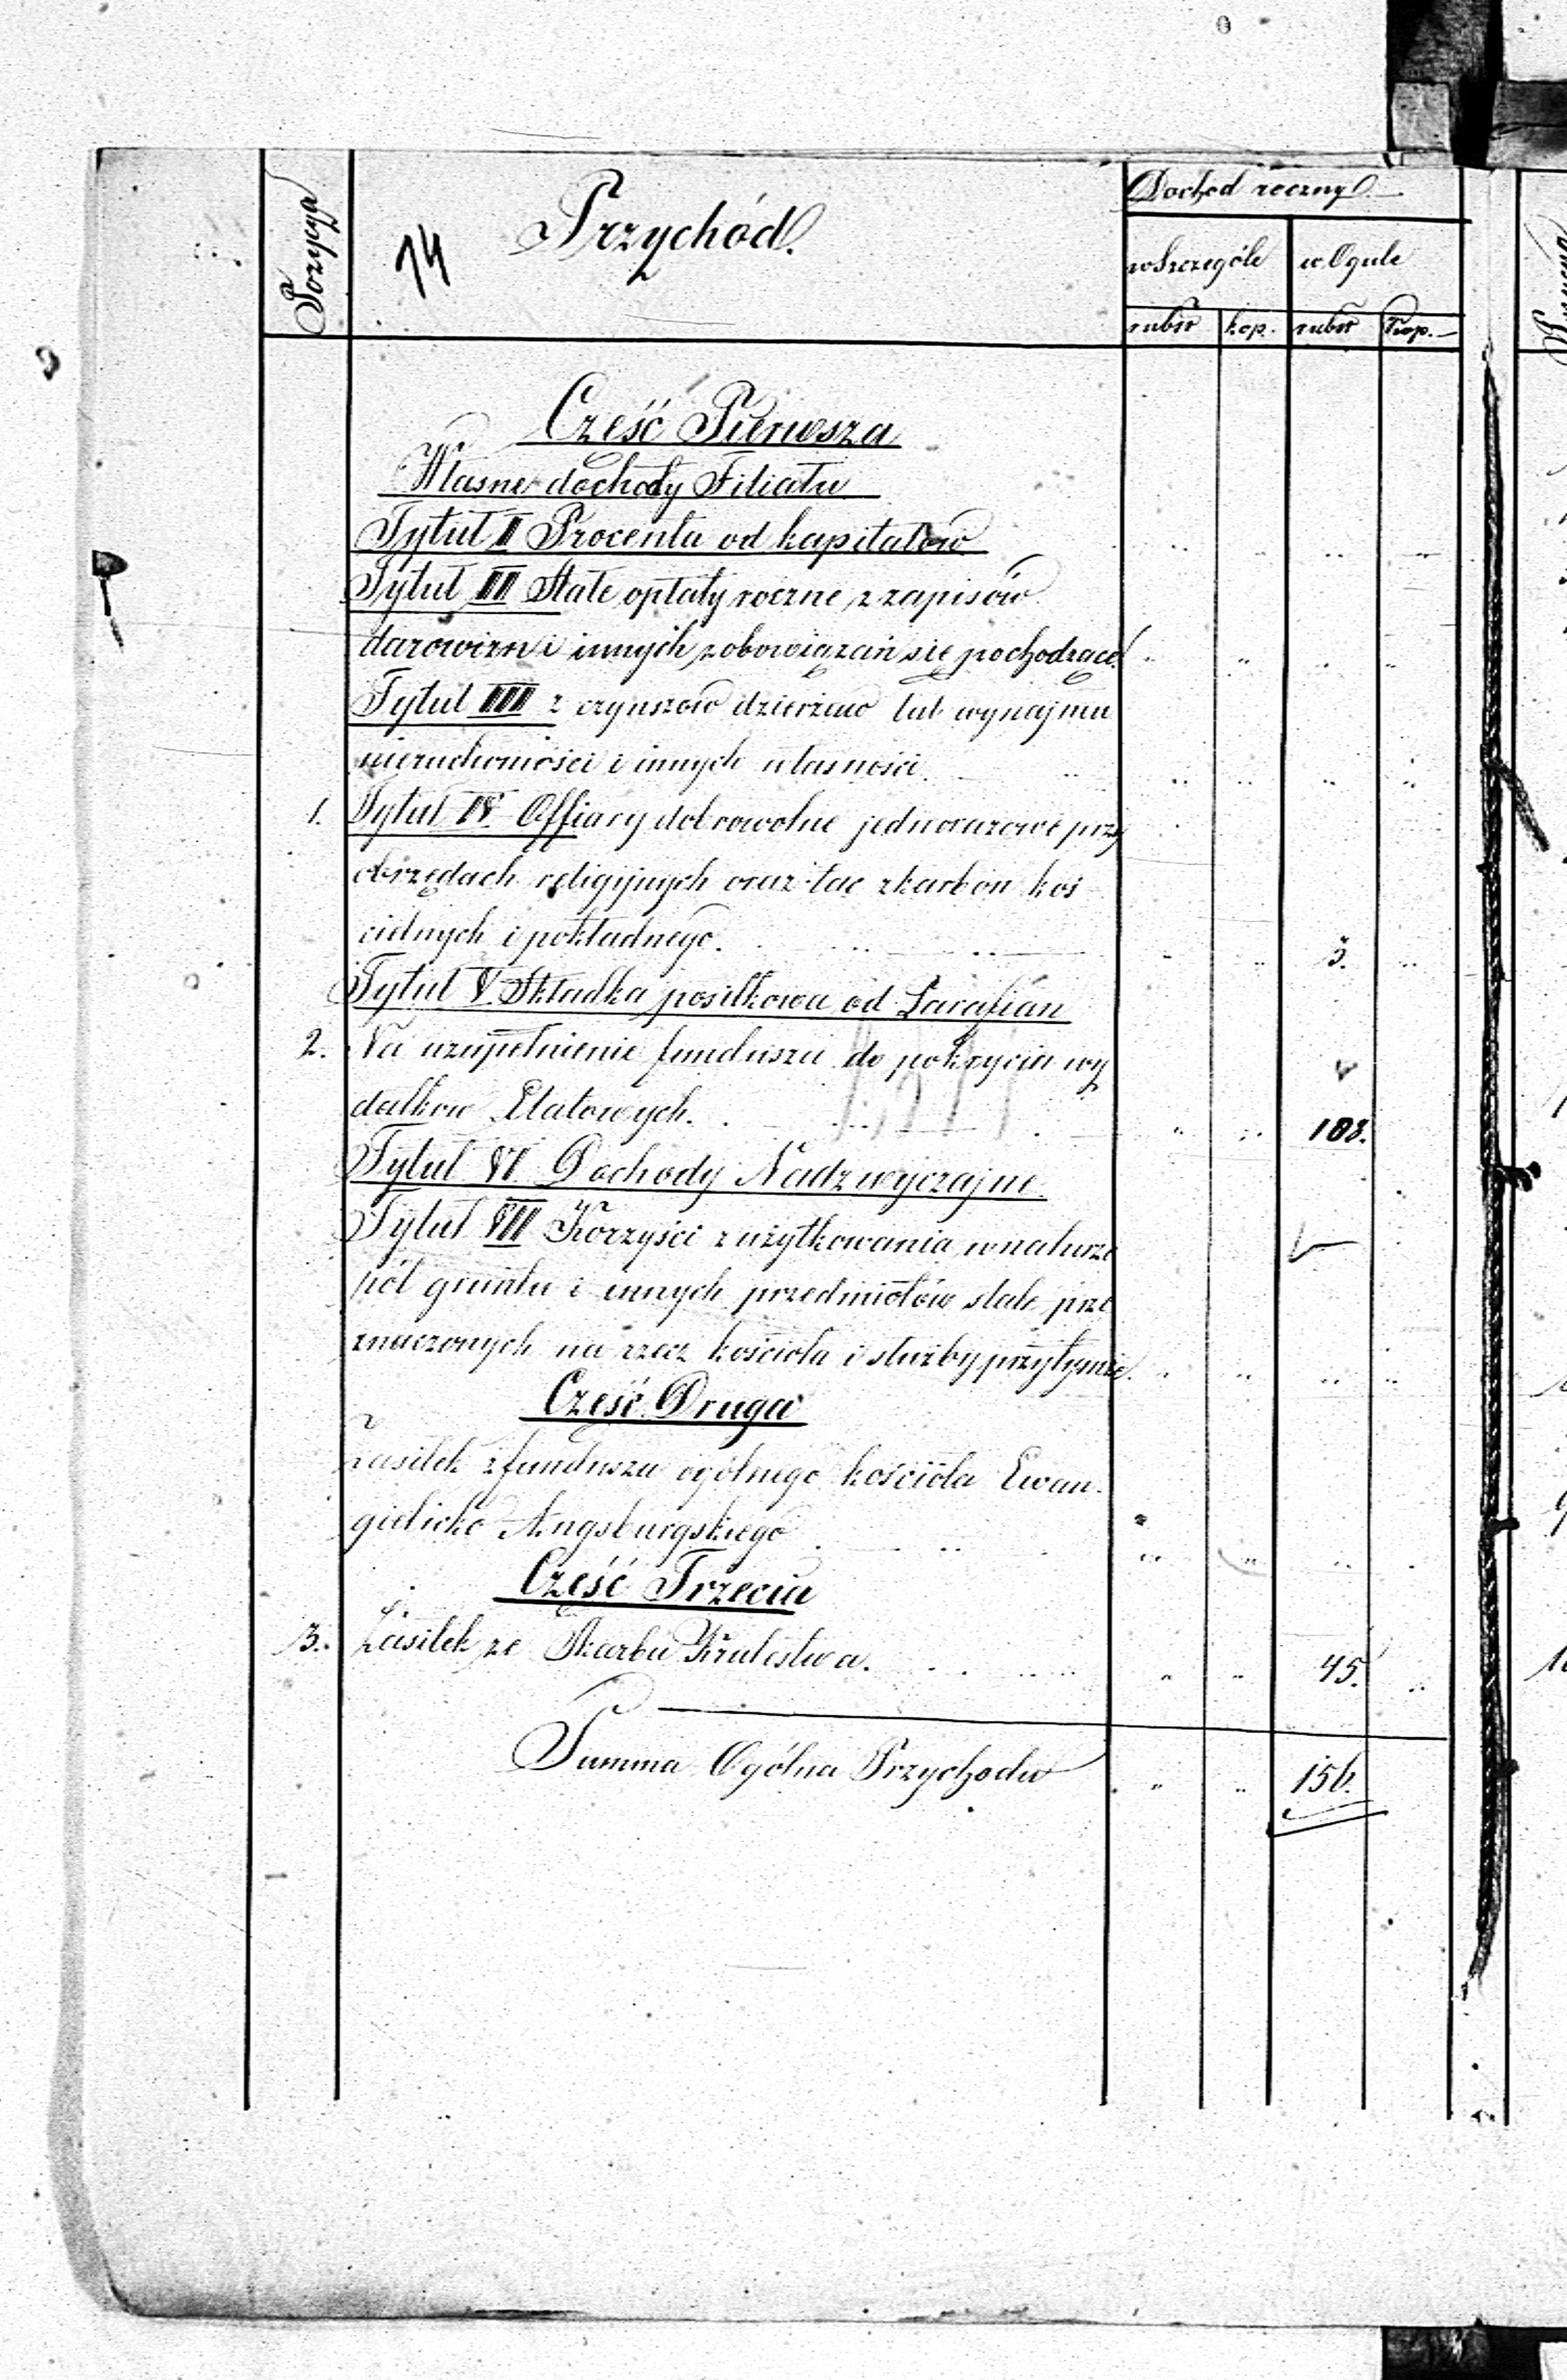 Pozycya
14
Przychód.
Dochod roczny
w Szczególe
w Ogule
rubsr
kop.
rubsr
kop.
Część Pierwsza
Własne dochody Filiału
Tytuł II Procenta od kapitałow
Tytuł III Stałe opłaty roczne z zapisów
darowizn i innych zobowiązań się pochodzące
Tytuł IIII z czynszów dzierzaw lub wynajmu
nieruchomości i innych własności
1. Tytuł IV. Offiary dobrowolne jednorazowe przy
obrzędach religijnych oraz tac skarbon koś
cielnych i pokładnego. 3.
Tytuł V. Składka posiłkowa od Parafian
2. Na uzupełnienie funduszu do pokrycia wy
datkow Etatowych. 108.
Tytuł VI Dochody Nadzwyczajne
Tytuł VII Korzyści z użytkowania w naturze
pól gruntu i innych przedmiotów stale prze
znaczonych na rzecz kościoła i służby przytymże.
Część Druga
Zasiłek z funduszu ogólnego kościoła Ewan.
gielicko Augsburgskiego
Część Trzecia
3. Zasiłek ze Skarbu Krulestwa. 45.
Summa Ogólna Przychodu 156.